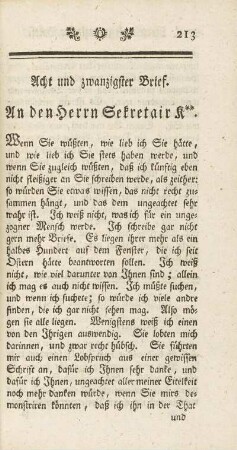 213
Acht und zwanzigster Brief.
An den Herrn Sekretair K**.
Wenn Sie wüßten, wie lieb ich Sie hätte,
und wie lieb ich Sie stets haben werde, und
wenn Sie zugleich wüßten, daß ich künftig eben
nicht fleißiger an Sie schreiben werde, als zeither;
so würden Sie etwas wissen, das nicht recht zusam
men hängt, und das dem ungeachtet sehr
wahr ist. Ich weiß nicht, was ich für ein unge-
zogner Mensch werde. Ich schreibe gar nicht
gern mehr Briefe. Es liegen ihrer mehr als ein
halbes Hundert auf dem Fenster, die ich seit
Ostern hätte beantworten sollen. Ich weiß
nicht, wie viel darunter von Ihnen sind; allein
ich mag es auch nicht wissen. Ich müßte suchen,
und wenn ich suchete; so würde ich viele andre
finden, die ich gar nicht sehen mag. Also mö-
gen sie alle liegen. Wenigstens weiß ich einen
von den Ihrigen auswendig. Sie lobten mich
darinnen, und zwar recht hübsch. Sie führten
mir auch einen Lobspruch aus einer gewissen
Schrift an, dafür ich Ihnen sehr danke, und
dafür ich Ihnen, ungeachtet aller meiner Eitelkeit
noch mehr danken würde, wenn Sie mirs de-
monstriren könnten, daß ich ihn in der That
und